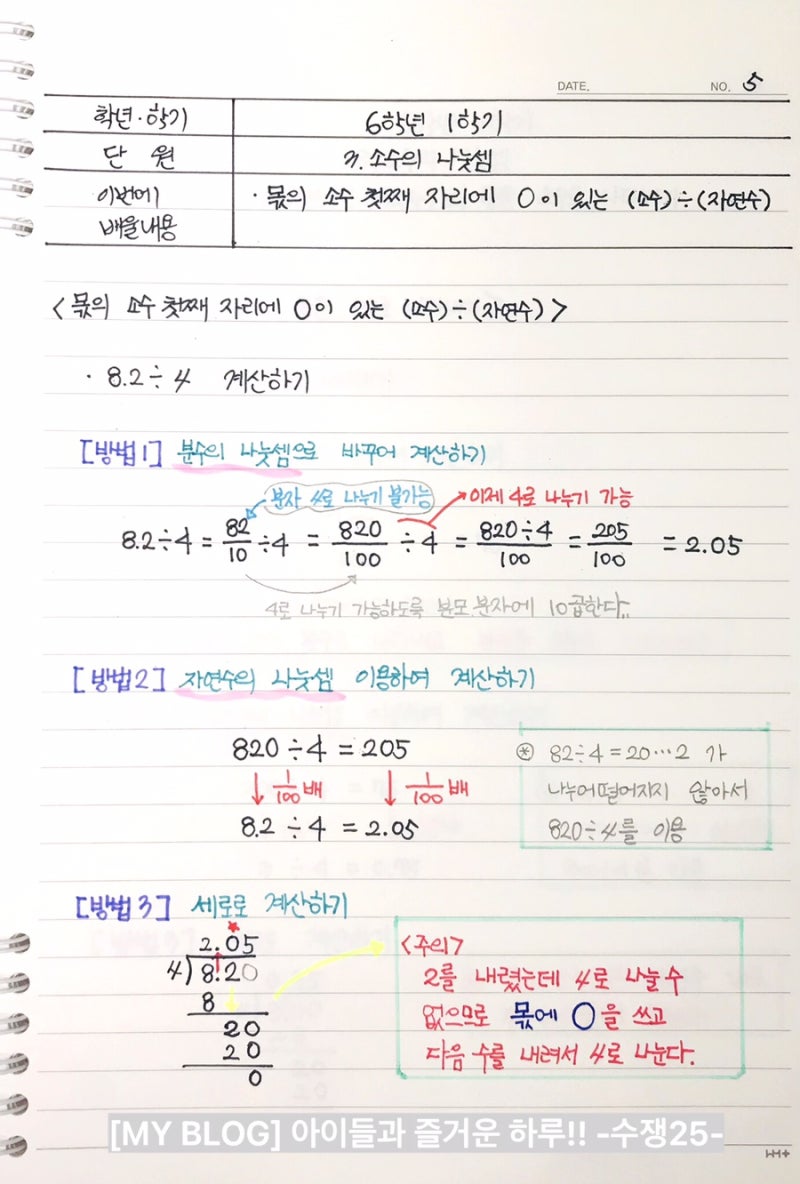 DATE. NO. 5
학년·학기 6학년 1학기
단 원 3. 소수의 나눗셈
이번에 · 몫의 소수 첫째 자리에 0이 있는 (소수)÷(자연수)
배울내용
<몫의 소수 첫째 자리에 0이 있는 (소수)÷(자연수)>
· 8.2÷4 계산하기
[방법1] 분수의 나눗셈으로 바꾸어 계산하기
분자 4로 나누기 불가능 이제 4로 나누기 가능
8.2÷4 = 82/10 ÷4 = 820/100 ÷4 = 820÷4/100 = 205/100 = 2.05
4로 나누기 가능하도록 분모 분자에 10곱한다..
[방법2] 자연수의 나눗셈 이용하여 계산하기
820÷4 = 205
↓ 1/100배 ↓ 1/100배
8.2÷4 = 2.05
※ 82÷4=20…2 가
나누어떨어지지 않아서
820÷4를 이용
[방법3] 세로로 계산하기
2.05
4)8.20
8
20
20
0
<주의>
2를 내렸는데 4로 나눌 수
없으므로 몫에 0을 쓰고
다음 수를 내려서 4로 나눈다.
[MY BLOG] 아이들과 즐거운 하루!! -수쟁25-